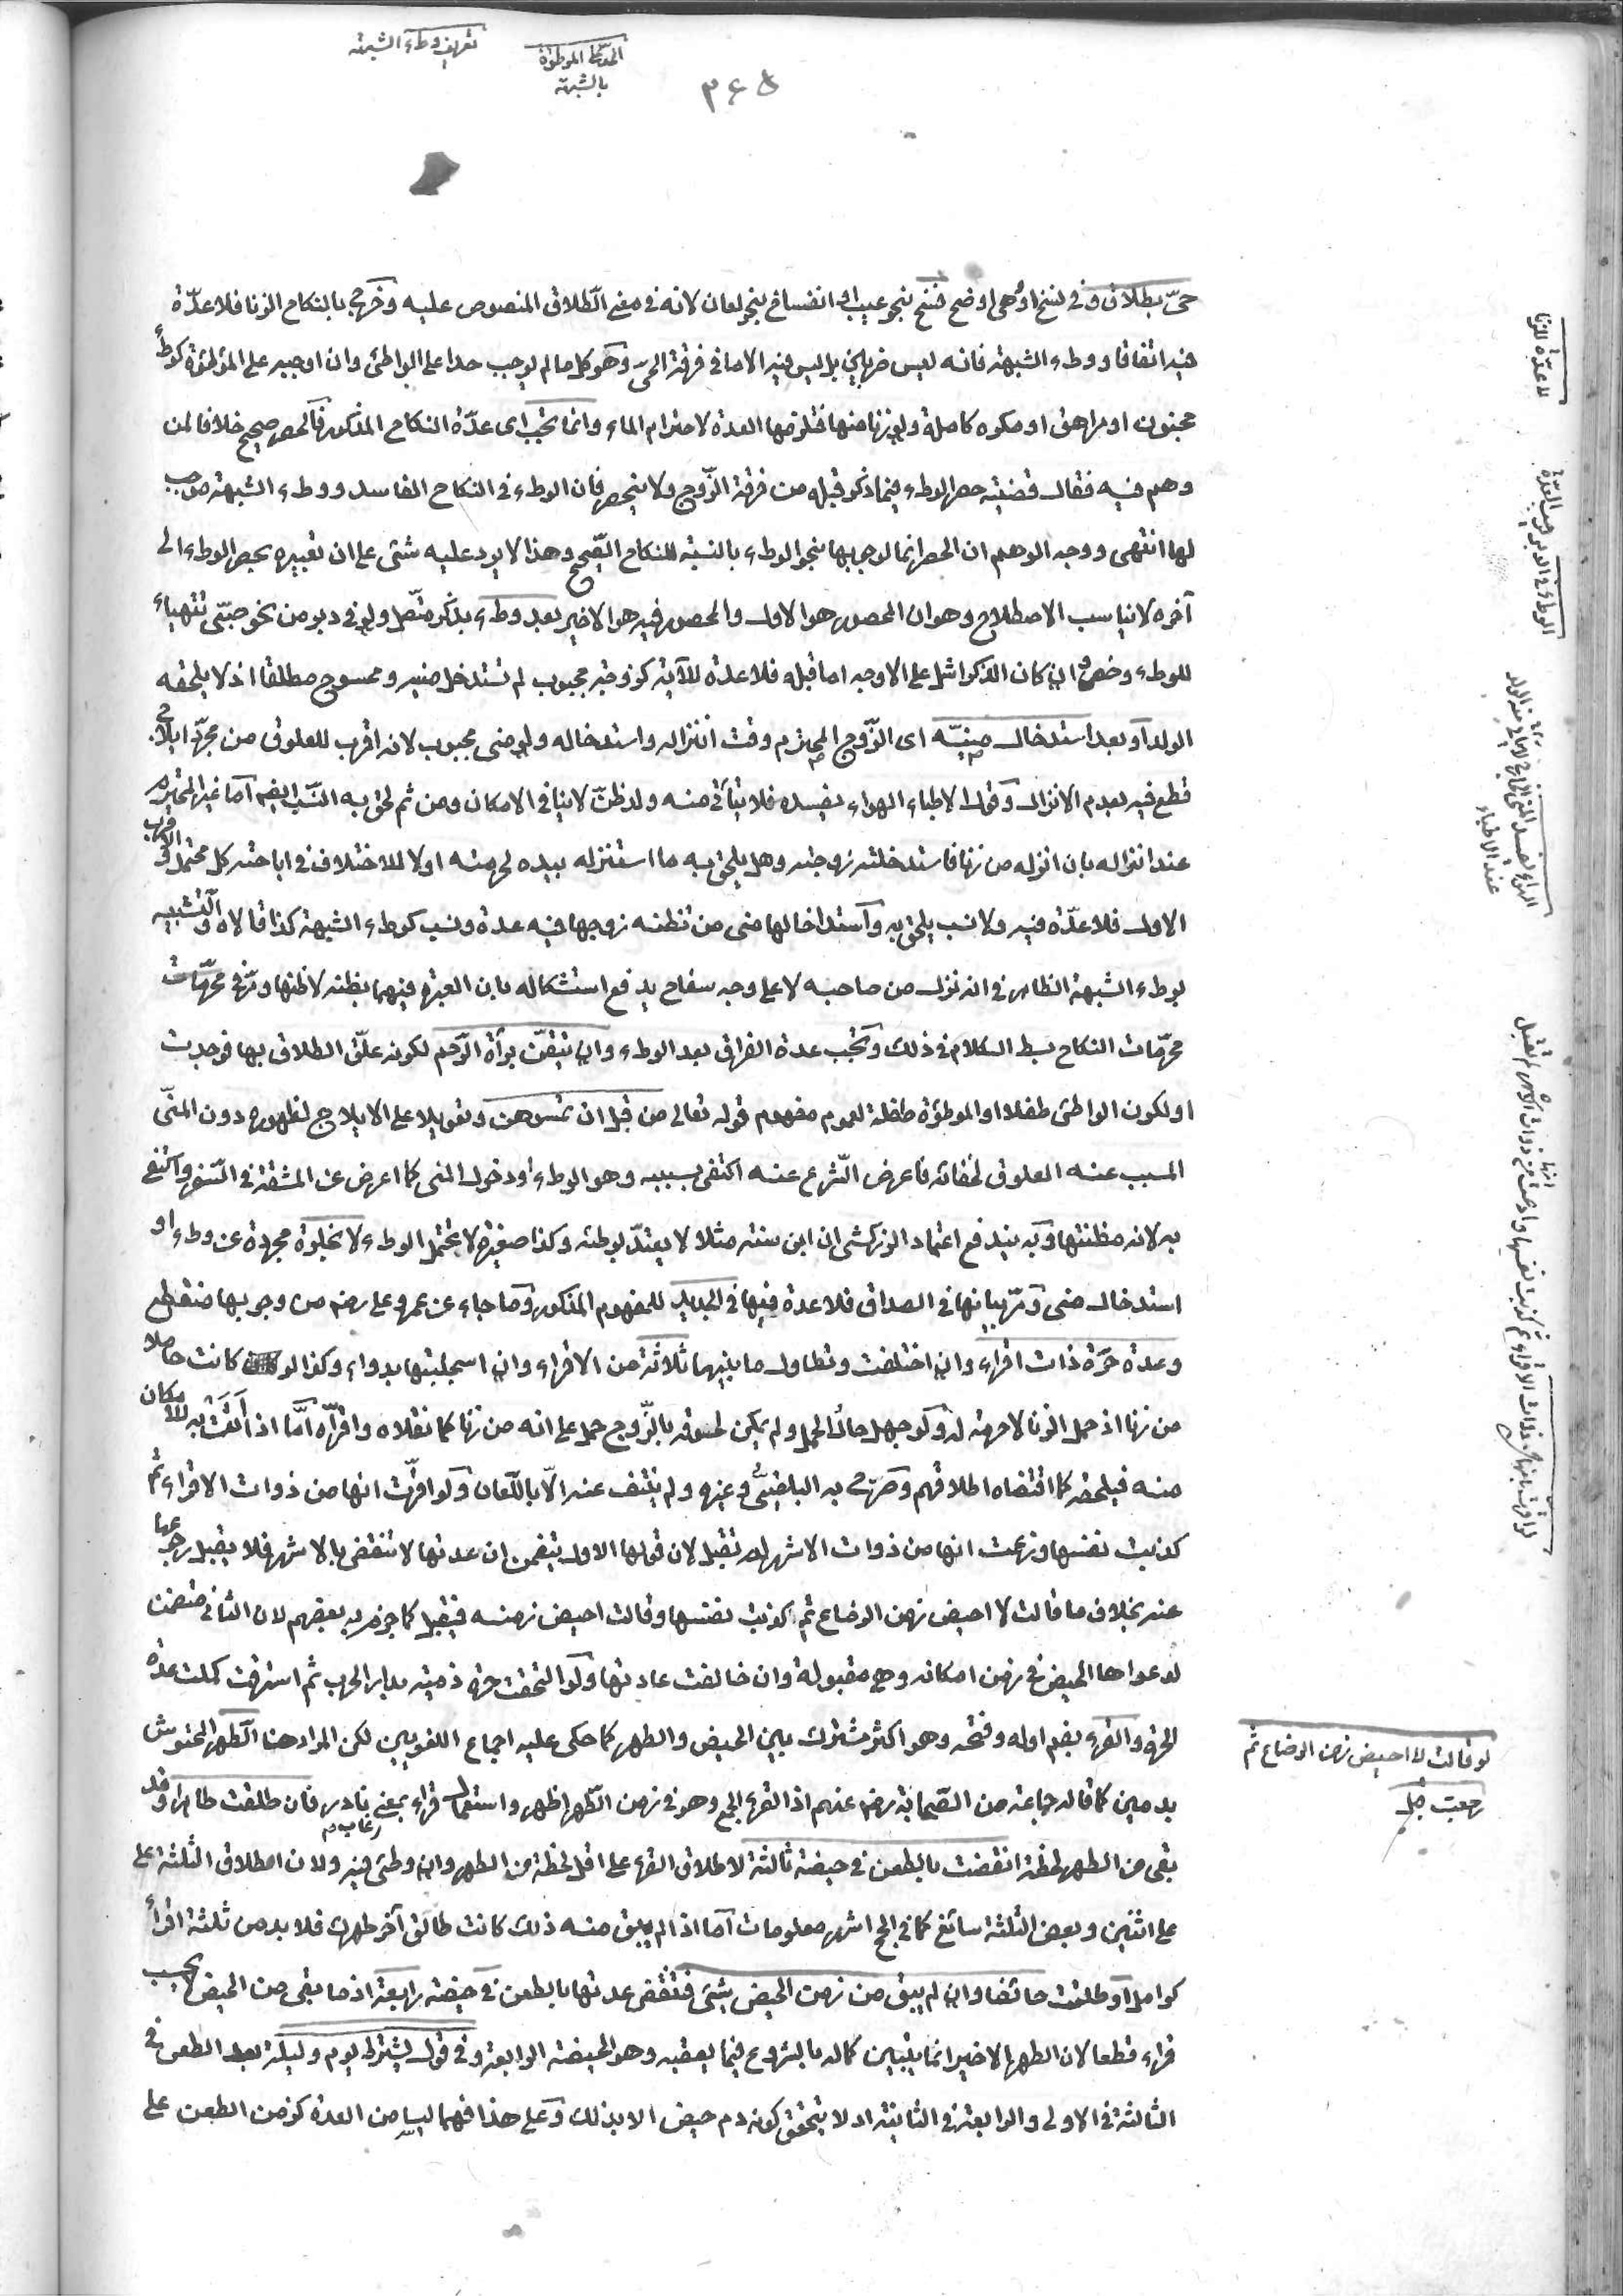 تعريف وطء الشبهة
العدة الموطوءة
بالشبهة
٣٤٥
حيّ بطلاق وفي نسخ او وهي اوضح فسخ بنحو عيب او انفساخ بنحو لعان لانه في معنى الطلاق المنصوص عليه وخرج بالنكاح الزنا فلا عدّة
فيه اتفاقا ووطء الشبهة فانه ليس ضربا بل ليس فيه الا ما في فرقة الحيّ وهو كل ما لم يوجب حدا على الواطئ وان اوجبه على الموطوءة كوطأ
مجنون او مراهق او مكره كاملة ولو زنا منها فتلزمها العدة لاحترام الماء وانما تجب اى عدّة النكاح المذكور فالحصر صحيح خلافا لمن
وهم فيه فقال قضيته حصر الوطء فيما ذكر قبله من فرقة الزوج ولا ينحصر فان الوطء في النكاح الفاسد ووطء الشبهة موجب
لها انتهى ووجه الوهم ان الحصر انما لوجوبها بنحو الوطء بالنسبة للنكاح الصّحيح وهذا لا يرد عليه شئ على ان تعبيره بحصر الوطء الى
آخره لا يناسب الاصطلاح وهو ان المحصور هو الاول والمحصور فيه هو الاخير بعد وطء بذكر متّصل ولو في دبر من نحو صبىّ تهيأ
للوطء وخصى وان كان الذكر اشل على الاوجه اما قبله فلا عدة للآية كزوجة مجبوب لم تستدخل منيه وممسوح مطلقا اذ لا يلحقه
الولد او بعد استدخال منيّه اى الزّوج المحترم وقت انزاله واستدخاله ولو منى مجبوب لانه اقرب للعلوق من مجرّد ايلاج
قطع فيه بعدم الانزال وقول الاطباء الهواء يفسده فلا يتأتى منه ولد ظنّ لا ينافى الامكان ومن ثم لحق به النّسب ايضا اما غير المحترم
عند انزاله بان انزله من زنا فاستدخلته زوجته وهل يلحق به ما استنزله بيده لحرمته او لا للاختلاف في اباحته كل محتمل والاقرب
الاول فلا عدّة فيه ولا نسب يلحق به واستدخالها منى من تظنه زوجها فيه عدة ونسب كوطء الشبهة كذا قالاه والتشبيه
بوطء الشبهة الظاهر في انه نزل من صاحبه لا على وجه سفاح يدفع استشكاله بان العبرة فيهما بظنه لا ظنها ومرّ في محرّمات
محرّمات النكاح بسط الكلام في ذلك وتجب عدة الفراق بعد الوطء وان تيقّن برآة الرّحم لكونه علّق الطلاق بها فوجدت
او لكون الواطئ طفلا او الموطوءة طفلة لعموم مفهوم قوله تعالى من قبل ان تمسوهن وتعويلا على الايلاج لظهوره دون المنىّ
المسبب عنه العلوق لخفائه فاعرض الشّرع عنه اكتفى بسببه وهو الوطء او دخول المنى كما اعرض عن المشقة في السّفر واكتفى
به لانه مظنتها وبه يندفع اعتماد الزركشى ان ابن سنة مثلا لا يعتدّ بوطئه وكذا صغيرة لا تحتمل الوطء لا بخلوة مجردة عن وطء او
استدخال منى ومرّ بيانها في الصداق فلا عدة فيها في الجديد للمفهوم المذكور وما جاء عن عمر وعلى رضى من وجوبها منقطع
وعدة حرّة ذات اقراء وان اختلفت وتطاول ما بينهما ثلاثة من الاقراء وان استجلبتها بدواء وكذا لو كانت حاملا
من زنا اذ حمل الزنا لا حرمة له ولو جهل حال الحمل ولم يمكن لحوقه بالزّوج حمل على انه من زنا كما نقلاه واقرّاه امّا اذا اتت به للامكان
منه فيلحقه كما اقتضاه اطلاقهم وصرّح به البلقينىّ وغيره ولم ينتف عنه الّا باللّعان ولو اقرّت انها من ذوات الاقراء ثم
كذبت نفسها وزعمت انها من ذوات الاشهر لم تقبل لان قولها الاول يتضمن ان عدتها لا تنقضى بالاشهر فلا يقبل رجوعها
عنه بخلاف ما قالت لا احيض زمن الرضاع ثم اكذبت نفسها وقالت احيض زمنه فيقبل كما جزم به بعضهم لان الثانى متضمن
لدعواها الحيض في زمن امكانه وهى مقبولة وان خالفت عادتها ولو التحقت حرة ذمية بدار الحرب ثم استرقت كملت عدة
الحرة والقرء بضم اوله وفتحه وهو اكثر مشترك بين الحيض والطهر كما حكى عليه اجماع اللغويين لكن المراد هنا الطهر المحتوش
بدمين كما قاله جماعة من الصّحابة رضى عنهم اذ القرء الجمع وهو في زمن الطّهر اظهر واستعمال قراء بمعنى غاب نادر فان طلقت طاهرا وقد
بقى من الطهر لحظة انقضت بالطعن في حيضة ثالثة لاطلاق القرء على اقل لحظة من الطهر وان وطئ فيه ولان اطلاق الثلثة على
على اثنين وبعض الثلثة سائغ كما في الحج اشهر معلومات اما اذا لم يبق منه ذلك كانت طالق آخر طهرك فلا بد من ثلثة اقرأ
كوامل او طلقت حائضا وان لم يبق من زمن الحيض شئ فتنقضى عدتها بالطعن في حيضة رابعة اذ ما بقى من الحيض لا يحسب
قراء قطعا لان الطهر الاخير انما يتبين كماله بالشروع فيما يعقبه وهو الحيضة الرابعة وفي قول يشترط يوم وليلة بعد الطعن في
الثالثة في الاولى والرابعة في الثانية اذ لا يتحقق كونه دم حيض الا بذلك وعلى هذا فهما ليسا من العدة كزمن الطعن على
لا عدّة للزنا
الوطء في الدبر يوجب العدّة
الهواء يفسد المنى
عند الاطباء
لو اقرت بانها من ذوات الاقراء ثم كذبت نفسها وادعت انها من ذوات الاشهر لم تقبل
لو قالت لا احيض زمن الرضاع ثم
رجعت قبل